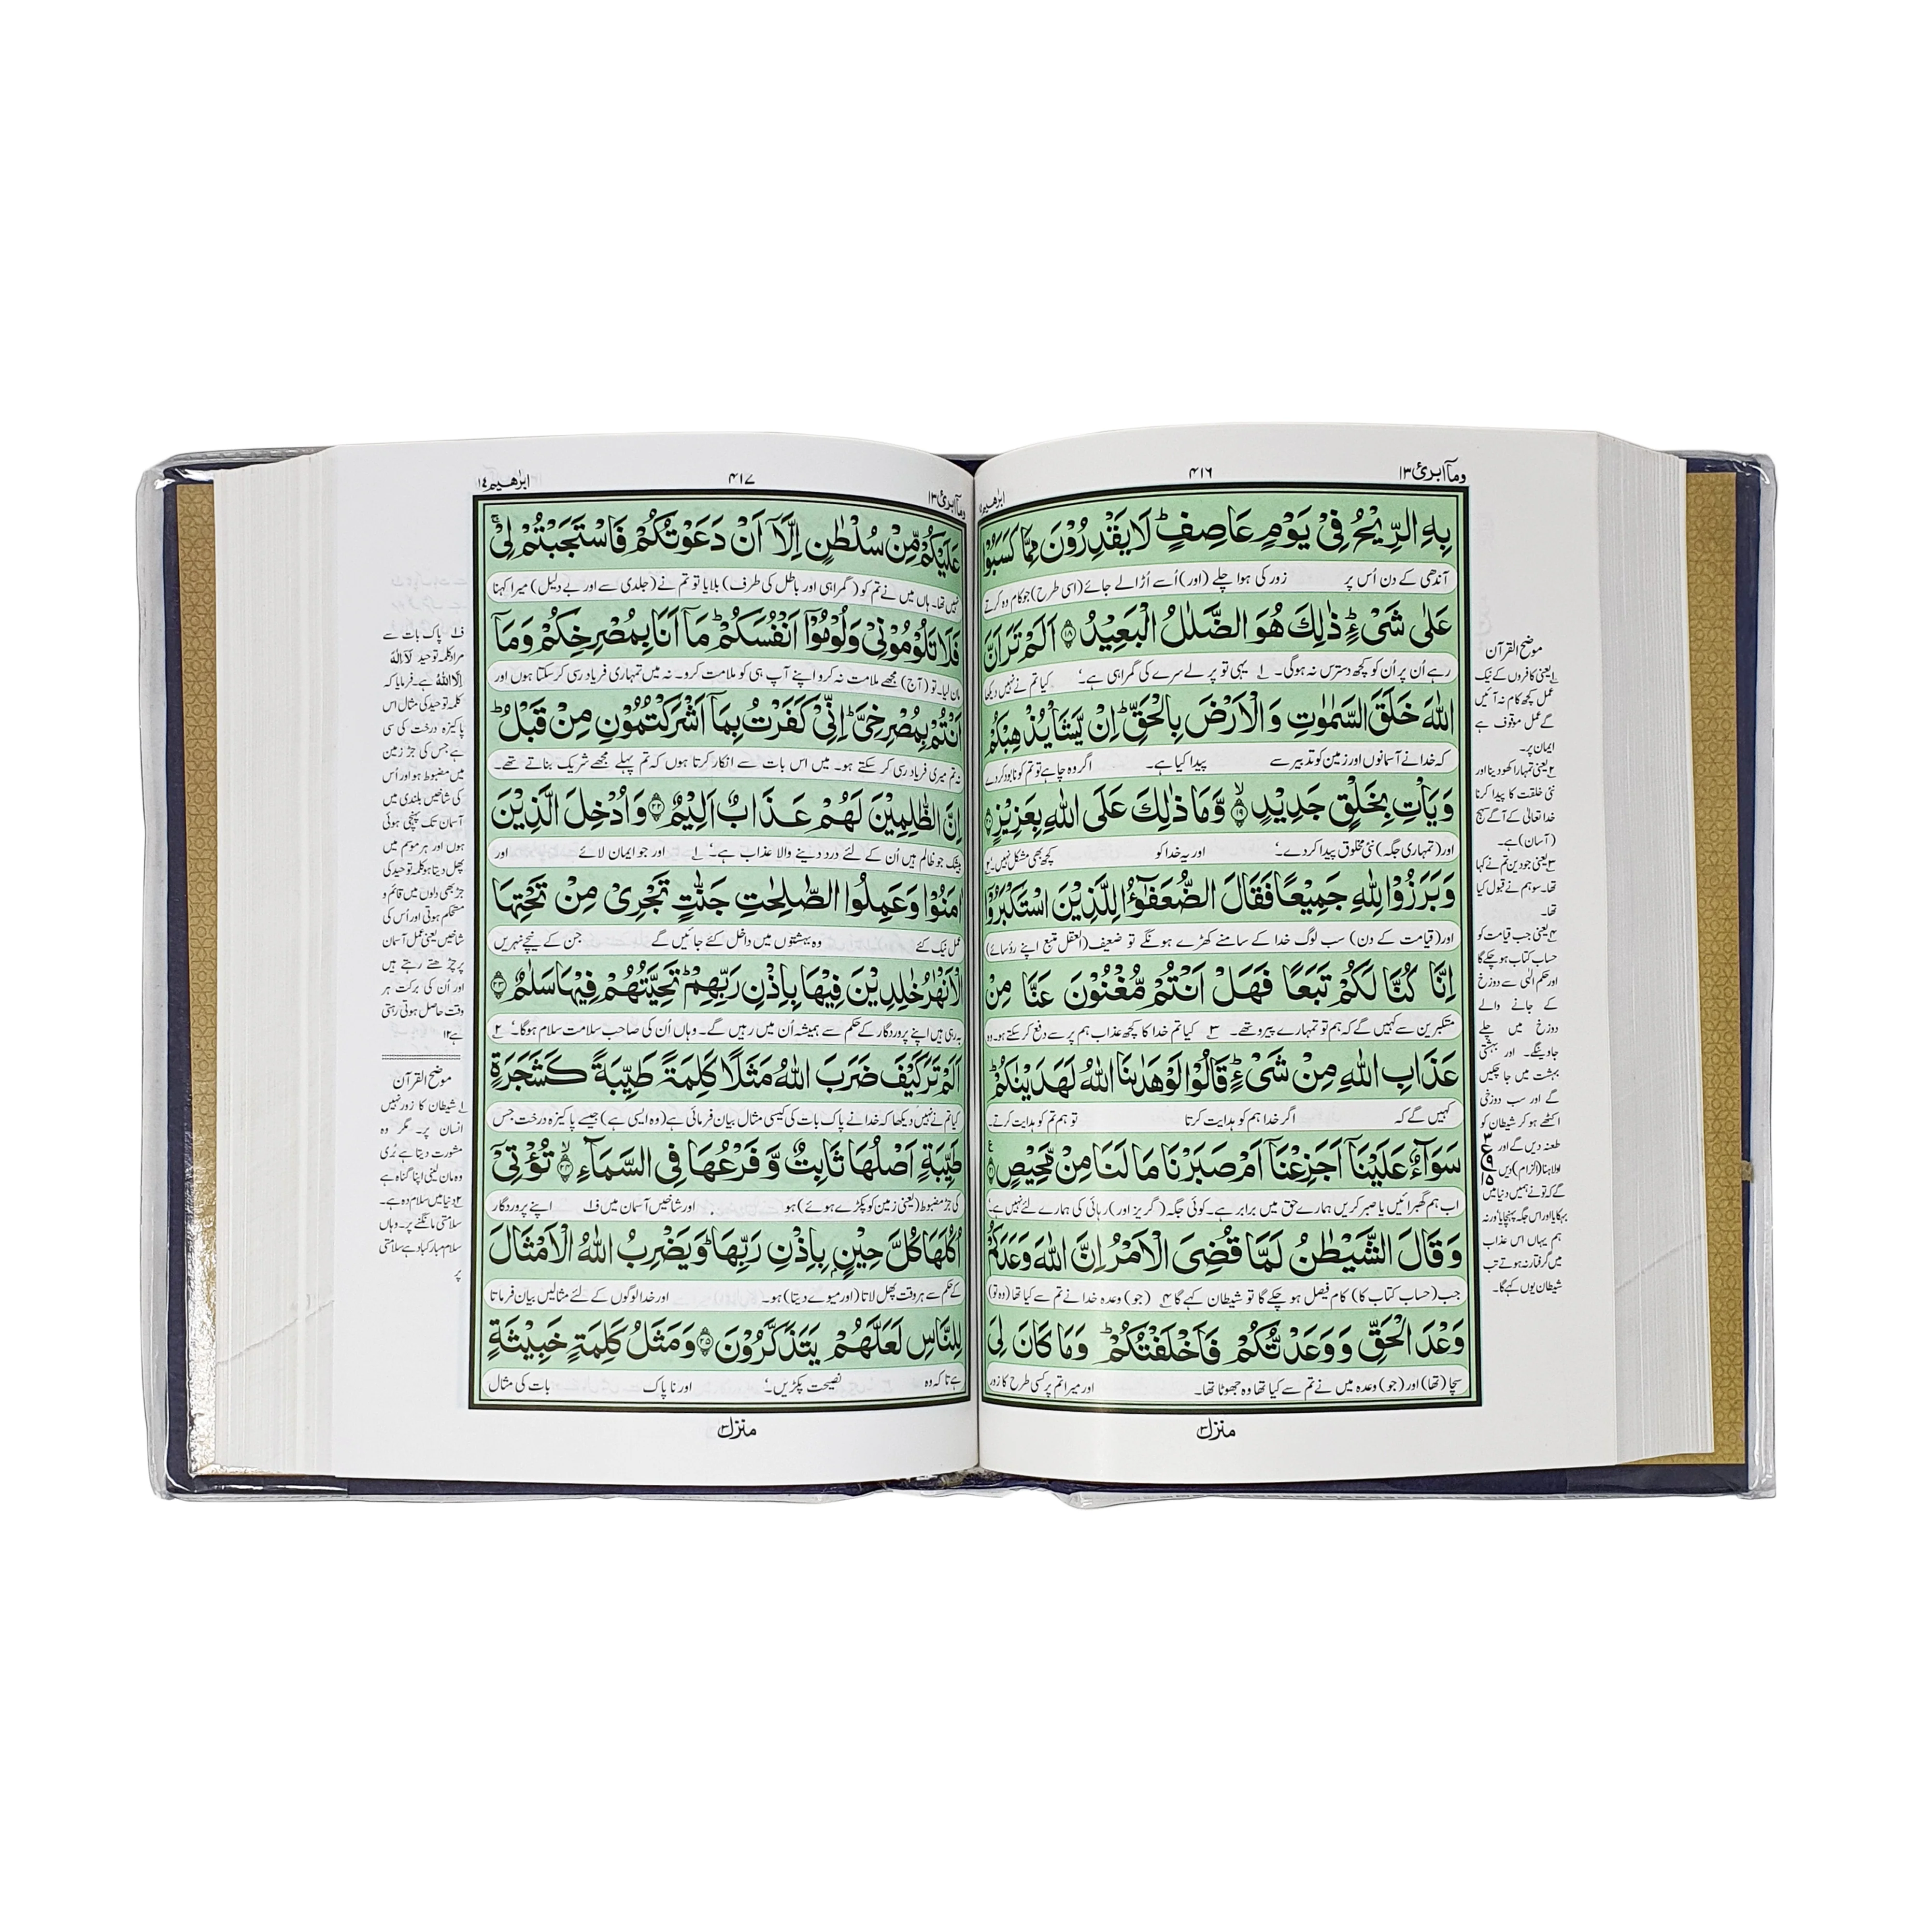 ومآ ابرئ ۱۳
۴۱۶
ابرٰهیم
بِهِ الرِّيْحُ فِيْ يَوْمٍ عَاصِفٍ ؕ لَا يَقْدِرُوْنَ مِمَّا كَسَبُوْا
آندھی کے دن اُس پر زور کی ہوا چلے (اور) اُسے اُڑا لے جائے (اسی طرح) جو کام وہ کرتے
عَلٰى شَىْءٍ ؕ ذٰلِكَ هُوَ الضَّلٰلُ الْبَعِيْدُ ۝۱۸ اَلَمْ تَرَ اَنَّ
رہے اُن پر اُن کو کچھ دسترس نہ ہوگی۔ ۱ یہی تو پرلے سرے کی گمراہی ہے۔ کیا تم نے نہیں دیکھا
اللّٰهَ خَلَقَ السَّمٰوٰتِ وَ الْاَرْضَ بِالْحَقِّ ؕ اِنْ يَّشَاْ يُذْهِبْكُمْ
کہ خدا نے آسمانوں اور زمین کو تدبیر سے پیدا کیا ہے۔ اگر وہ چاہے تو تم کو نابود کر دے
وَ يَاْتِ بِخَلْقٍ جَدِيْدٍ ۝۱۹ۙ وَّ مَا ذٰلِكَ عَلَى اللّٰهِ بِعَزِيْزٍ ۝۲۰
اور (تمہاری جگہ) نئی مخلوق پیدا کر دے۔ اور یہ خدا کو کچھ بھی مشکل نہیں۔ ۲
وَ بَرَزُوْا لِلّٰهِ جَمِيْعًا فَقَالَ الضُّعَفٰٓؤُا لِلَّذِيْنَ اسْتَكْبَرُوْٓا
اور (قیامت کے دن) سب لوگ خدا کے سامنے کھڑے ہونگے تو ضعیف (العقل متبع اپنے رؤسائے)
اِنَّا كُنَّا لَكُمْ تَبَعًا فَهَلْ اَنْتُمْ مُّغْنُوْنَ عَنَّا مِنْ
متکبرین سے کہیں گے کہ ہم تو تمہارے پیرو تھے۔ ۳ کیا تم خدا کا کچھ عذاب ہم پر سے دفع کر سکتے ہو۔ وہ
عَذَابِ اللّٰهِ مِنْ شَىْءٍ ؕ قَالُوْا لَوْ هَدٰىنَا اللّٰهُ لَهَدَيْنٰكُمْ ؕ
کہیں گے کہ اگر خدا ہم کو ہدایت کرتا تو ہم تم کو ہدایت کرتے۔
سَوَآءٌ عَلَيْنَاۤ اَجَزِعْنَاۤ اَمْ صَبَرْنَا مَا لَنَا مِنْ مَّحِيْصٍ
اب ہم گھبرائیں یا صبر کریں ہمارے حق میں برابر ہے۔ کوئی جگہ (گریز اور) رہائی کی ہمارے لئے نہیں ہے۔
وَ قَالَ الشَّيْطٰنُ لَمَّا قُضِىَ الْاَمْرُ اِنَّ اللّٰهَ وَعَدَكُمْ
جب (حساب کتاب کا) کام فیصل ہو چکے گا تو شیطان کہے گا ۴ (جو) وعدہ خدا نے تم سے کیا تھا (وہ تو)
وَعْدَ الْحَقِّ وَ وَعَدْتُّكُمْ فَاَخْلَفْتُكُمْ ؕ وَ مَا كَانَ لِىَ
سچا (تھا) اور (جو) وعدہ میں نے تم سے کیا تھا وہ جھوٹا تھا۔ اور میرا تم پر کسی طرح کا زور
منزل ۳
موضح القرآن
۱ یعنی کافروں کے نیک
عمل کچھ کام نہ آئیں
گے عمل موقوف ہے
ایمان پر۔
۲ یعنی تمہارا کھو دینا اور
نئی خلقت کا پیدا کرنا
خدا تعالیٰ کے آگے سہج
(آسان) ہے۔
۳ یعنی جو دین تم نے کہا
تھا۔ سو ہم نے قبول کیا
تھا۔
۴ یعنی جب قیامت کو
حساب کتاب ہو چکے گا
اور حکم الٰہی سے دوزخ
کے جانے والے
دوزخ میں چلے
جاوینگے۔ اور بہشتی
بہشت میں جا چکیں
گے اور سب دوزخی
اکٹھے ہو کر شیطان کو
طعنہ دیں گے اور
اولاہنا (الزام) دیں
گے کہ تو نے ہمیں دنیا میں
بہکایا اور اس جگہ پہنچایا ورنہ
ہم یہاں اس عذاب
میں گرفتار نہ ہوتے تب
شیطان یوں کہے گا۔
ومآ ابرئ ۱۳
۴۱۷
ابرٰهیم ۱۴
عَلَيْكُمْ مِّنْ سُلْطٰنٍ اِلَّاۤ اَنْ دَعَوْتُكُمْ فَاسْتَجَبْتُمْ لِىْ ۚ
نہیں تھا۔ ہاں میں نے تم کو (گمراہی اور باطل کی طرف) بلایا تو تم نے (جلدی سے اور بے دلیل) میرا کہنا
فَلَا تَلُوْمُوْنِىْ وَ لُوْمُوْۤا اَنْفُسَكُمْ ؕ مَاۤ اَنَا بِمُصْرِخِكُمْ وَ مَاۤ
مان لیا۔ تو (آج) مجھے ملامت نہ کرو اپنے آپ ہی کو ملامت کرو۔ نہ میں تمہاری فریاد رسی کر سکتا ہوں اور
اَنْتُمْ بِمُصْرِخِىَّ ؕ اِنِّىْ كَفَرْتُ بِمَاۤ اَشْرَكْتُمُوْنِ مِنْ قَبْلُ ؕ
نہ تم میری فریاد رسی کر سکتے ہو۔ میں اس بات سے انکار کرتا ہوں کہ تم پہلے مجھے شریک بناتے تھے۔
اِنَّ الظّٰلِمِيْنَ لَهُمْ عَذَابٌ اَلِيْمٌ ۝۲۲ وَ اُدْخِلَ الَّذِيْنَ
بیشک جو ظالم ہیں اُن کے لئے درد دینے والا عذاب ہے۔ ۱ اور جو ایمان لائے اور
اٰمَنُوْا وَ عَمِلُوا الصّٰلِحٰتِ جَنّٰتٍ تَجْرِىْ مِنْ تَحْتِهَا
عمل نیک کئے وہ بہشتوں میں داخل کئے جائیں گے جن کے نیچے نہریں
الْاَنْهٰرُ خٰلِدِيْنَ فِيْهَا بِاِذْنِ رَبِّهِمْ ؕ تَحِيَّتُهُمْ فِيْهَا سَلٰمٌ ۝۲۳
بہ رہی ہیں اپنے پروردگار کے حکم سے ہمیشہ اُن میں رہیں گے۔ وہاں اُن کی صاحب سلامت سلام ہوگا۔ ۲
اَلَمْ تَرَ كَيْفَ ضَرَبَ اللّٰهُ مَثَلًا كَلِمَةً طَيِّبَةً كَشَجَرَةٍ
کیا تم نے نہیں دیکھا کہ خدا نے پاک بات کی کیسی مثال بیان فرمائی ہے (وہ ایسی ہے) جیسے پاکیزہ درخت جس
طَيِّبَةٍ اَصْلُهَا ثَابِتٌ وَّ فَرْعُهَا فِى السَّمَآءِ ۝۲۴ۙ تُؤْتِىْۤ
کی جڑ مضبوط (یعنی زمین کو پکڑے ہوئے) ہو اور شاخیں آسمان میں ف۱ اپنے پروردگار
اُكُلَهَا كُلَّ حِيْنٍۭ بِاِذْنِ رَبِّهَا ؕ وَ يَضْرِبُ اللّٰهُ الْاَمْثَالَ
کے حکم سے ہر وقت پھل لاتا (اور میوے دیتا) ہو۔ اور خدا لوگوں کے لئے مثالیں بیان فرماتا
لِلنَّاسِ لَعَلَّهُمْ يَتَذَكَّرُوْنَ ۝۲۵ وَ مَثَلُ كَلِمَةٍ خَبِيْثَةٍ
ہے تا کہ وہ نصیحت پکڑیں۔ اور ناپاک بات کی مثال
منزل ۳
ف۱ پاک بات سے
مراد کلمہ توحید لآ الٰہ
الا اللہ ہے۔ فرمایا کہ
کلمہ توحید کی مثال اس
پاکیزہ درخت کی سی
ہے جس کی جڑ زمین
میں مضبوط ہو اور اُس
کی شاخیں بلندی میں
آسمان تک پہنچی ہوئی
ہوں اور ہر موسم میں
پھل دیتا ہو کلمہ توحید کی
جڑ بھی دلوں میں قائم و
مستحکم ہوتی اور اُس کی
شاخیں یعنی عمل آسمان
پر چڑھتے رہتے ہیں
اور اُن کی برکت ہر
وقت حاصل ہوتی رہتی
ہے ۱۲
موضح القرآن
۱ شیطان کا زور نہیں
انسان پر۔ مگر وہ
مشورت دیتا ہے بُری
وہ مان لینی اپنا گناہ ہے
۲ دنیا میں سلام دعا ہے۔
سلامتی مانگنے پر۔ وہاں
سلام مبارکباد ہے سلامتی
پر